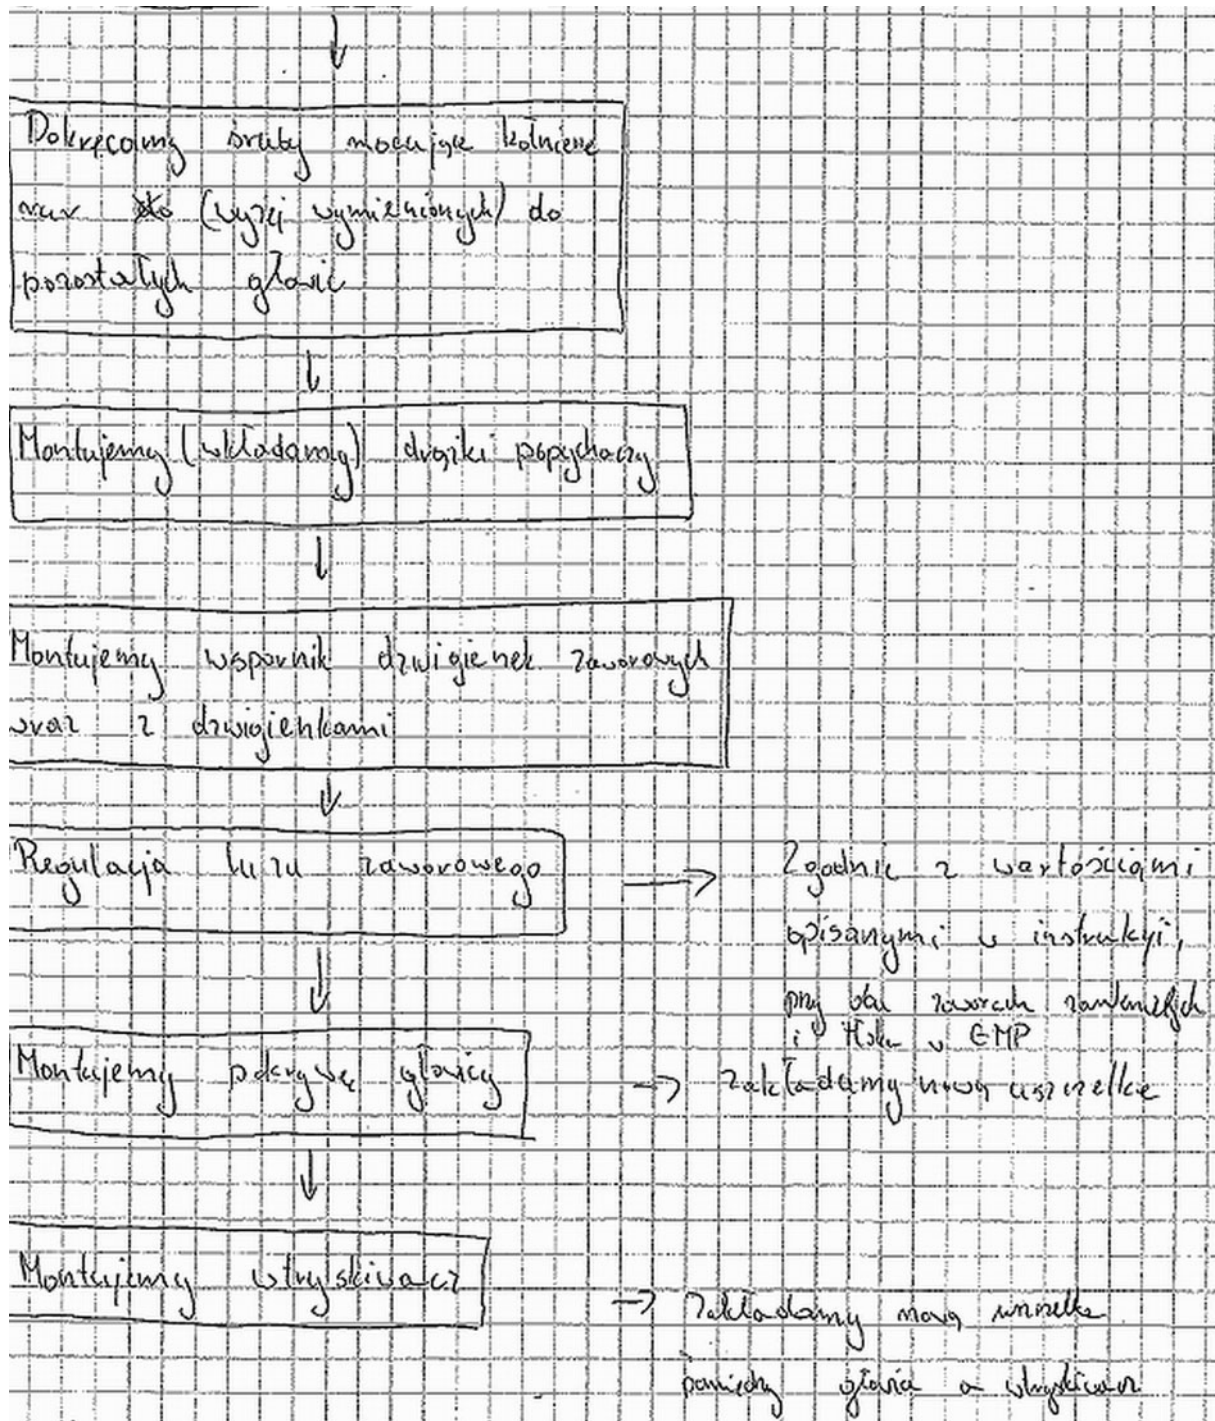 Dokręcamy śruby mocujące kołnierze
rur (wyżej wymienionych) do
pozostałych głowic
Montujemy (wkładamy) drążki popychaczy
Montujemy wspornik dźwigienek zaworowych
wraz z dźwigienkami
Regulacja luzu zaworowego
Zgodnie z wartościami
opisanymi w instrukcji,
przy obu zaworach zamkniętych
i tłoku w GMP
Montujemy pokrywę głowicy
Zakładamy nową uszczelkę
Montujemy wtryskiwacz
Zakładamy nową uszczelkę
pomiędzy głowicą a wtryskiwacz